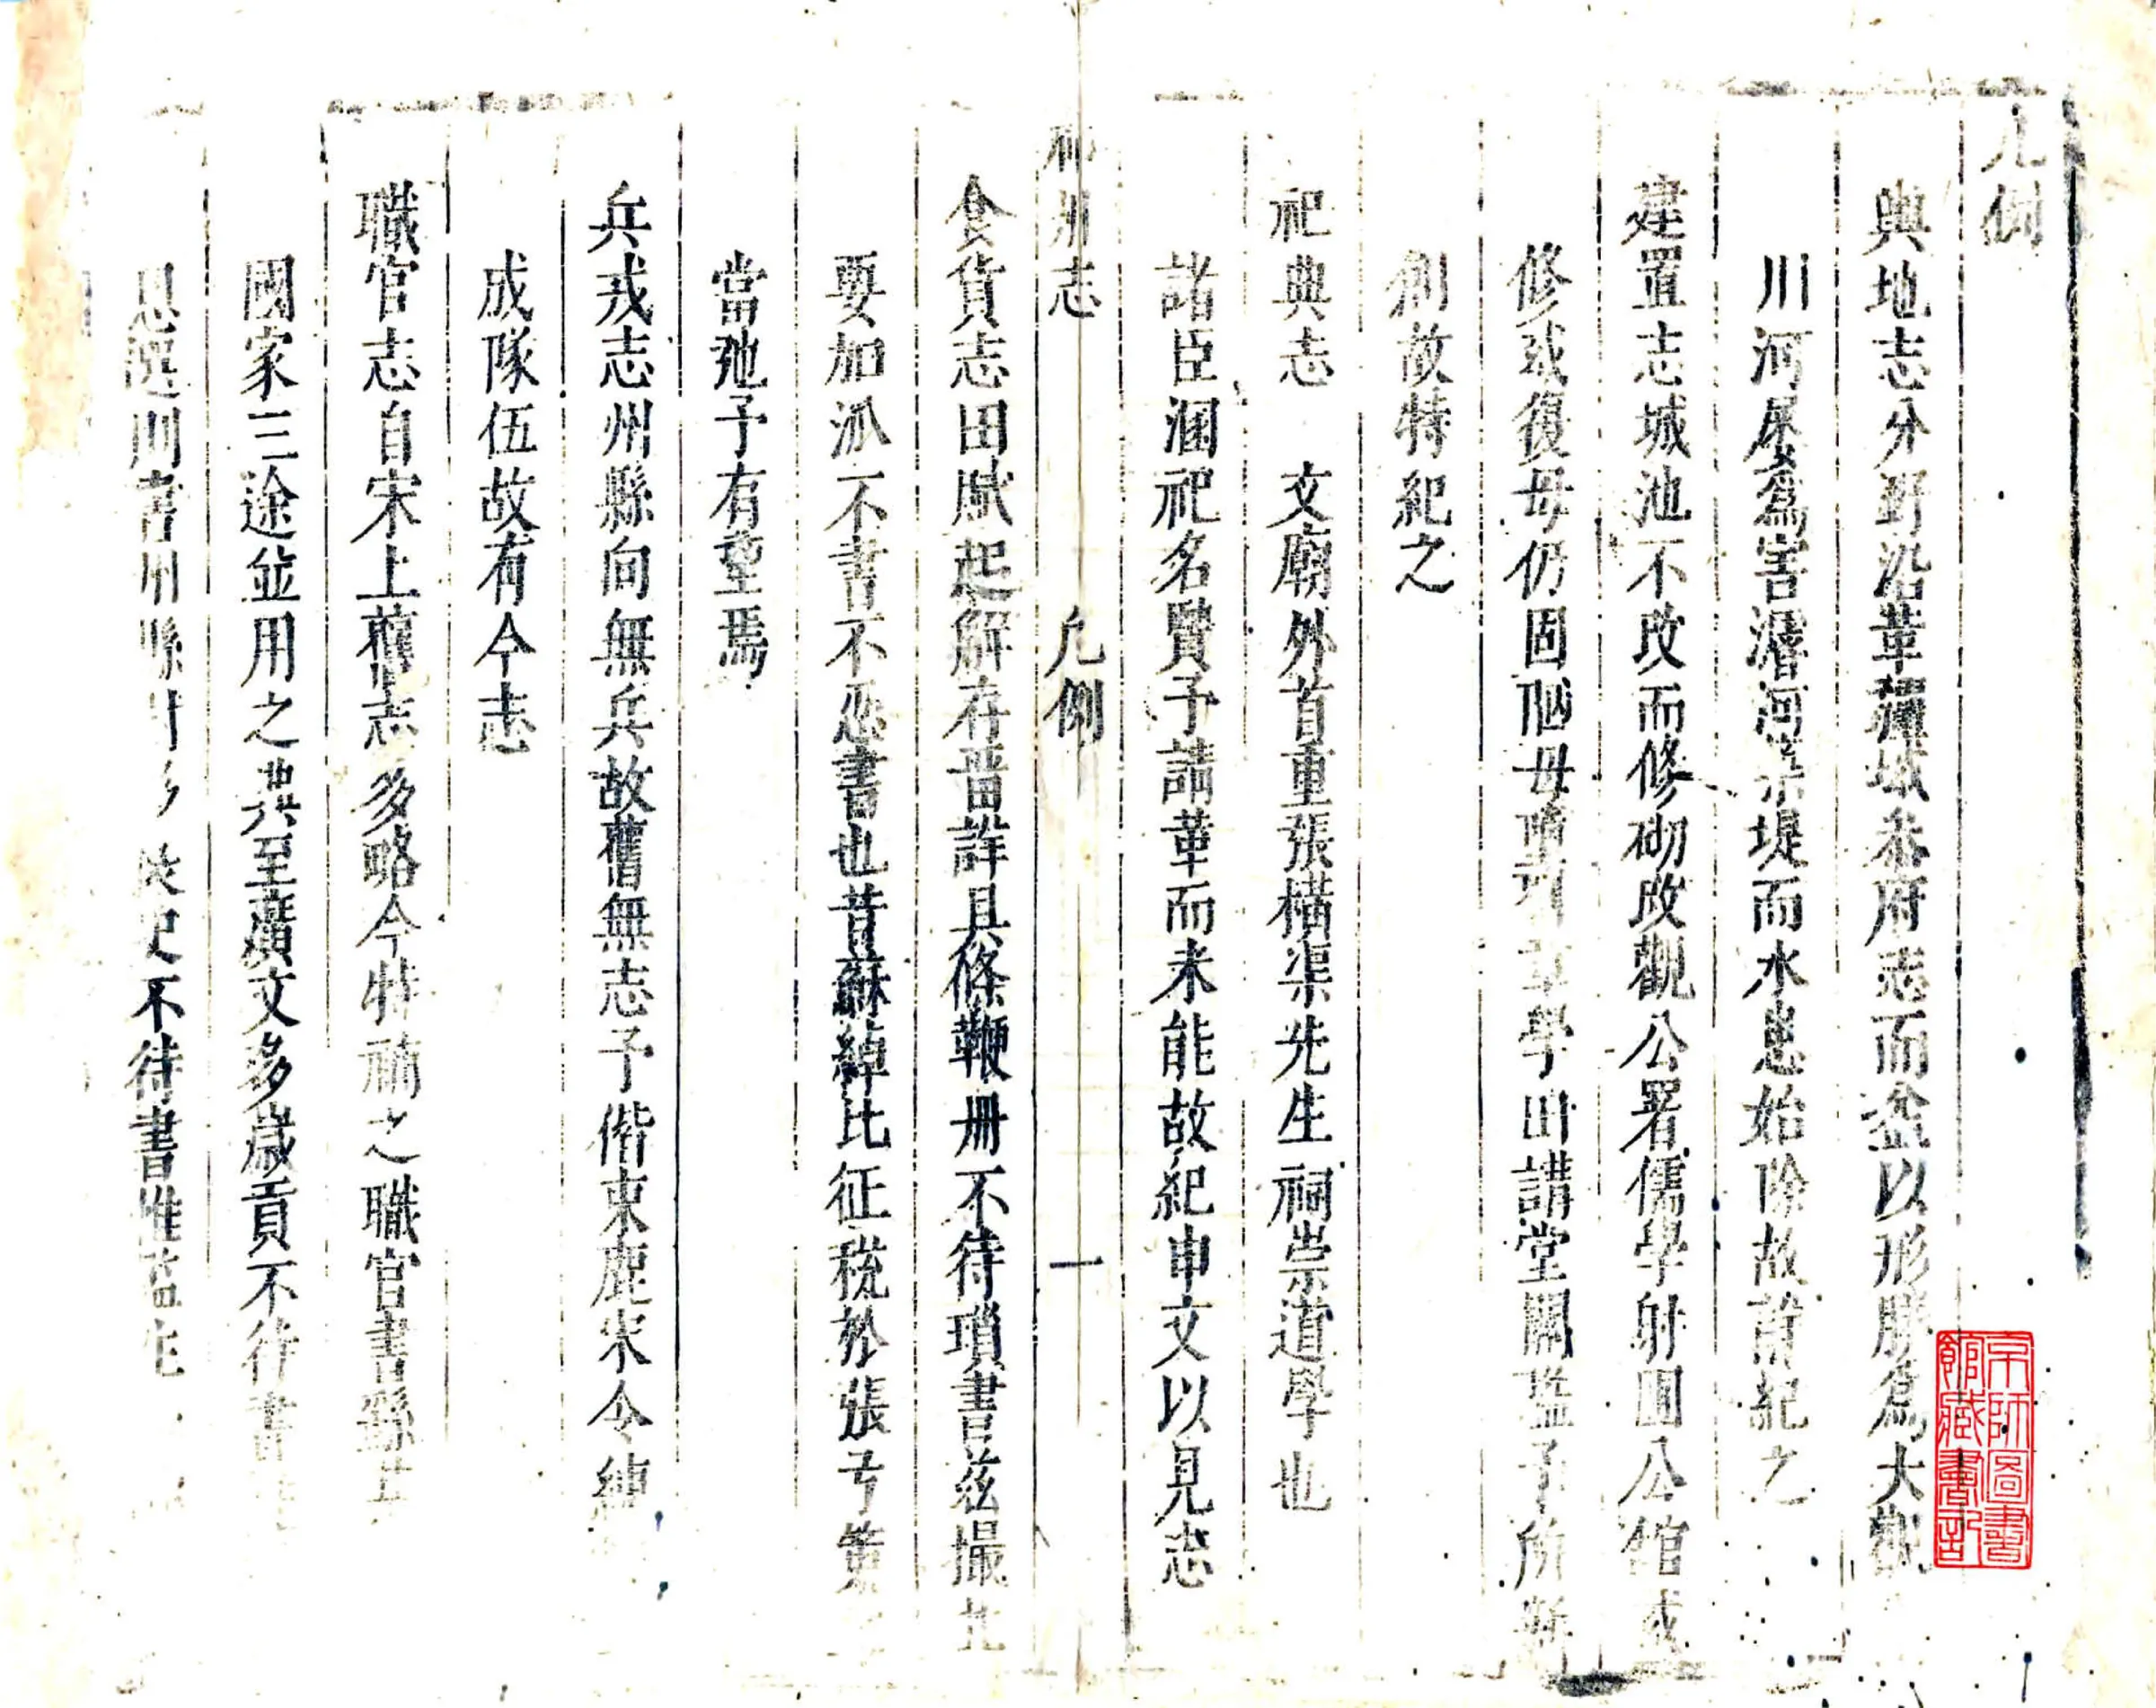 凡例
輿地志分野沿革疆域叅府志而益以形勝爲大觀
川河屢爲害濬河築堤而水患始除故首紀之
建置志城池不改而修砌改觀公署儒學射圃公館或
修或復毋仍固陋毋學田講堂關予所新
創故特紀之
祀典志 文廟外首重張橫渠先生祠崇道學也
諸臣溷祀名賢予請革而未能故紀申文以見志
祁州志 凡例 一
食貨志田賦起解存留詳具條鞭冊不待瑣書茲撮其
要加派不書不忍書也昔蘇綽比征稅於張弓策
當弛予有望焉
兵戎志州縣向無兵故舊無志予偕束鹿宋令練
成隊伍故有今志
職官志自宋上舊志多略今特補之職官書
國家三途並用之典至廣文多歲貢不待書
恩選則書州縣史不待書惟
京師圖書館藏書記